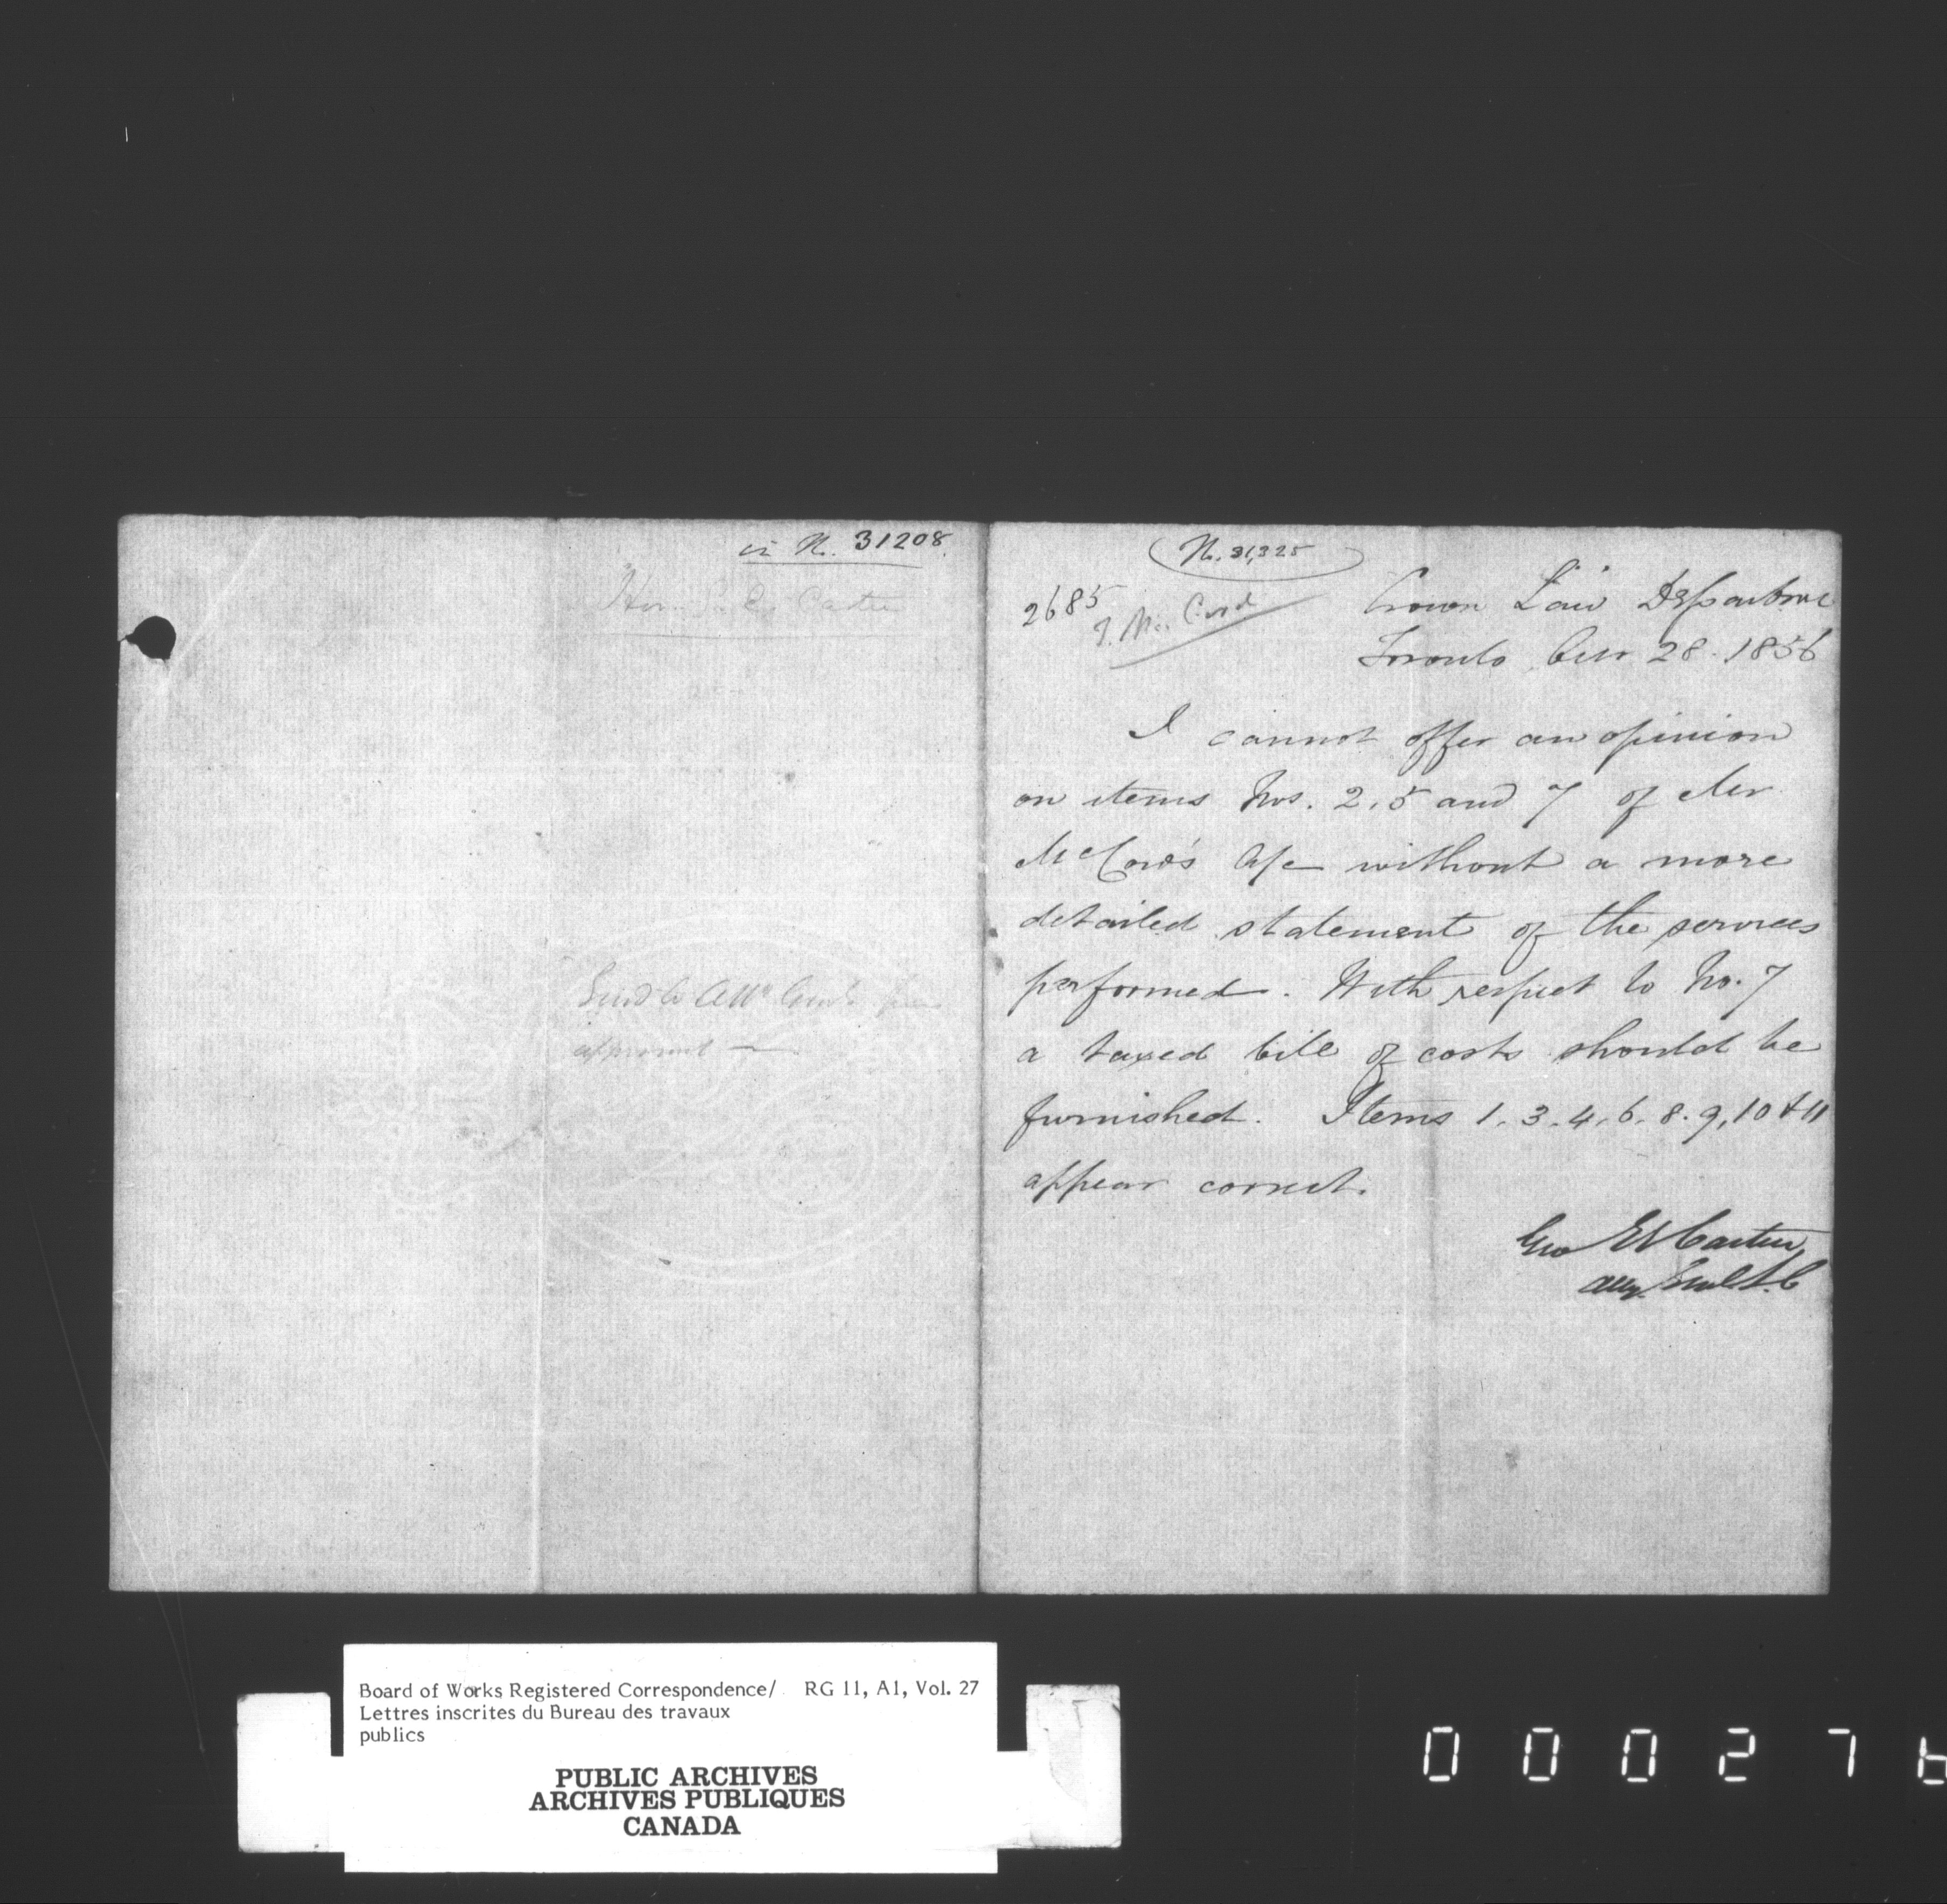 in No. 31208.
Hon. G. E. Cartier
Send to Atty Genl for
approval —
No. 31,325
2685
T. McCord
Crown Law Department
Toronto, 28. 1856
I cannot offer an opinion
on items Nos. 2, 5 and 7 of Mr
McCord's a/c without a more
detailed statement of the services
performed. With respect to No. 7
a taxed bill of costs should be
furnished. Items 1. 3. 4. 6. 8. 9, 10 & 11
appear correct.
Geo Et Cartier
Atty. Genl L.C
Board of Works Registered Correspondence/ RG 11, A1, Vol. 27
Lettres inscrites du Bureau des travaux
publics
PUBLIC ARCHIVES
ARCHIVES PUBLIQUES
CANADA
000276